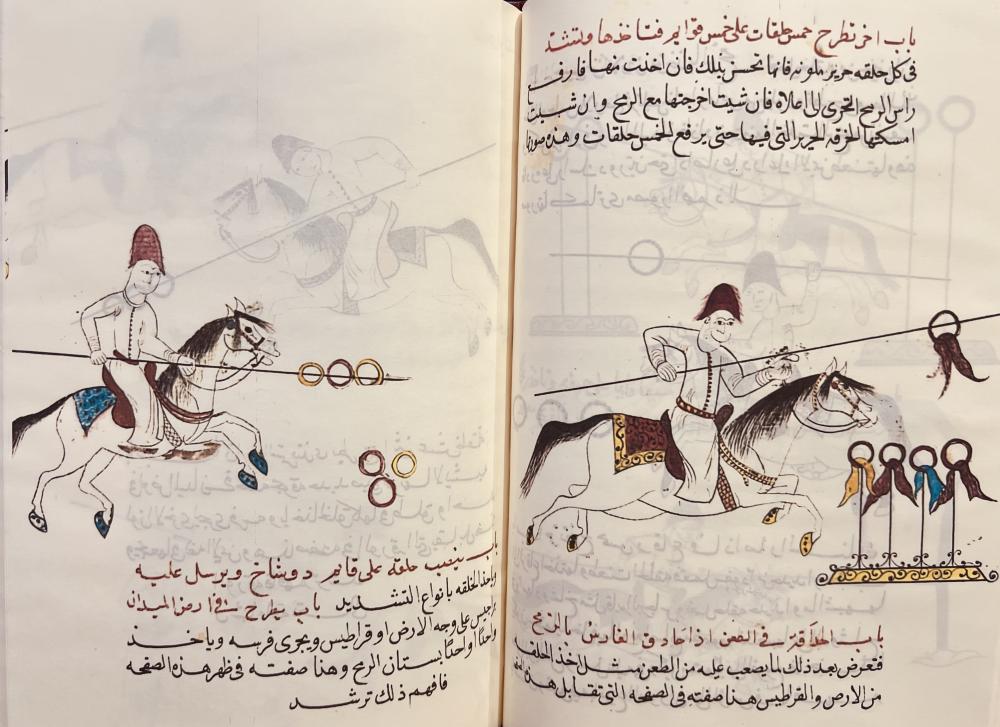 باب اخر تطرح خمس حلقات على خمس قوايم فتاخذها وتشد
في كل حلقه حرير ملونه فانها تحسن بذلك فان اخذت منها فارفع
راس الرمح التحرى الى اعلاه فان شيت اخرجتها مع الرمح وان شيت
امسكتها الخرقه الحرير التي فيها حتى يرفع الخمس حلقات وهذه صورتها
باب الحذاقة في الطعن اذا حاذق الفارس بالرمح
فتعرض بعد ذلك لما يصعب عليه من الطعن مثل اخذ الحلقه
من الارض والقراطيس هنا صفته في الصفحه التي تقابل هذه
باب ينصب حلقه على قايم دوشاخ ويرسل عليه
وياخذ الحلقه بانواع التشديد باب يطرح في ارض الميدان
على وجه الارض او قراطيس ويجرى فرسه وياخذ
واحدا واحدا بسنان الرمح وهنا صفته في ظهر هذه الصفحه
فافهم ذلك ترشد